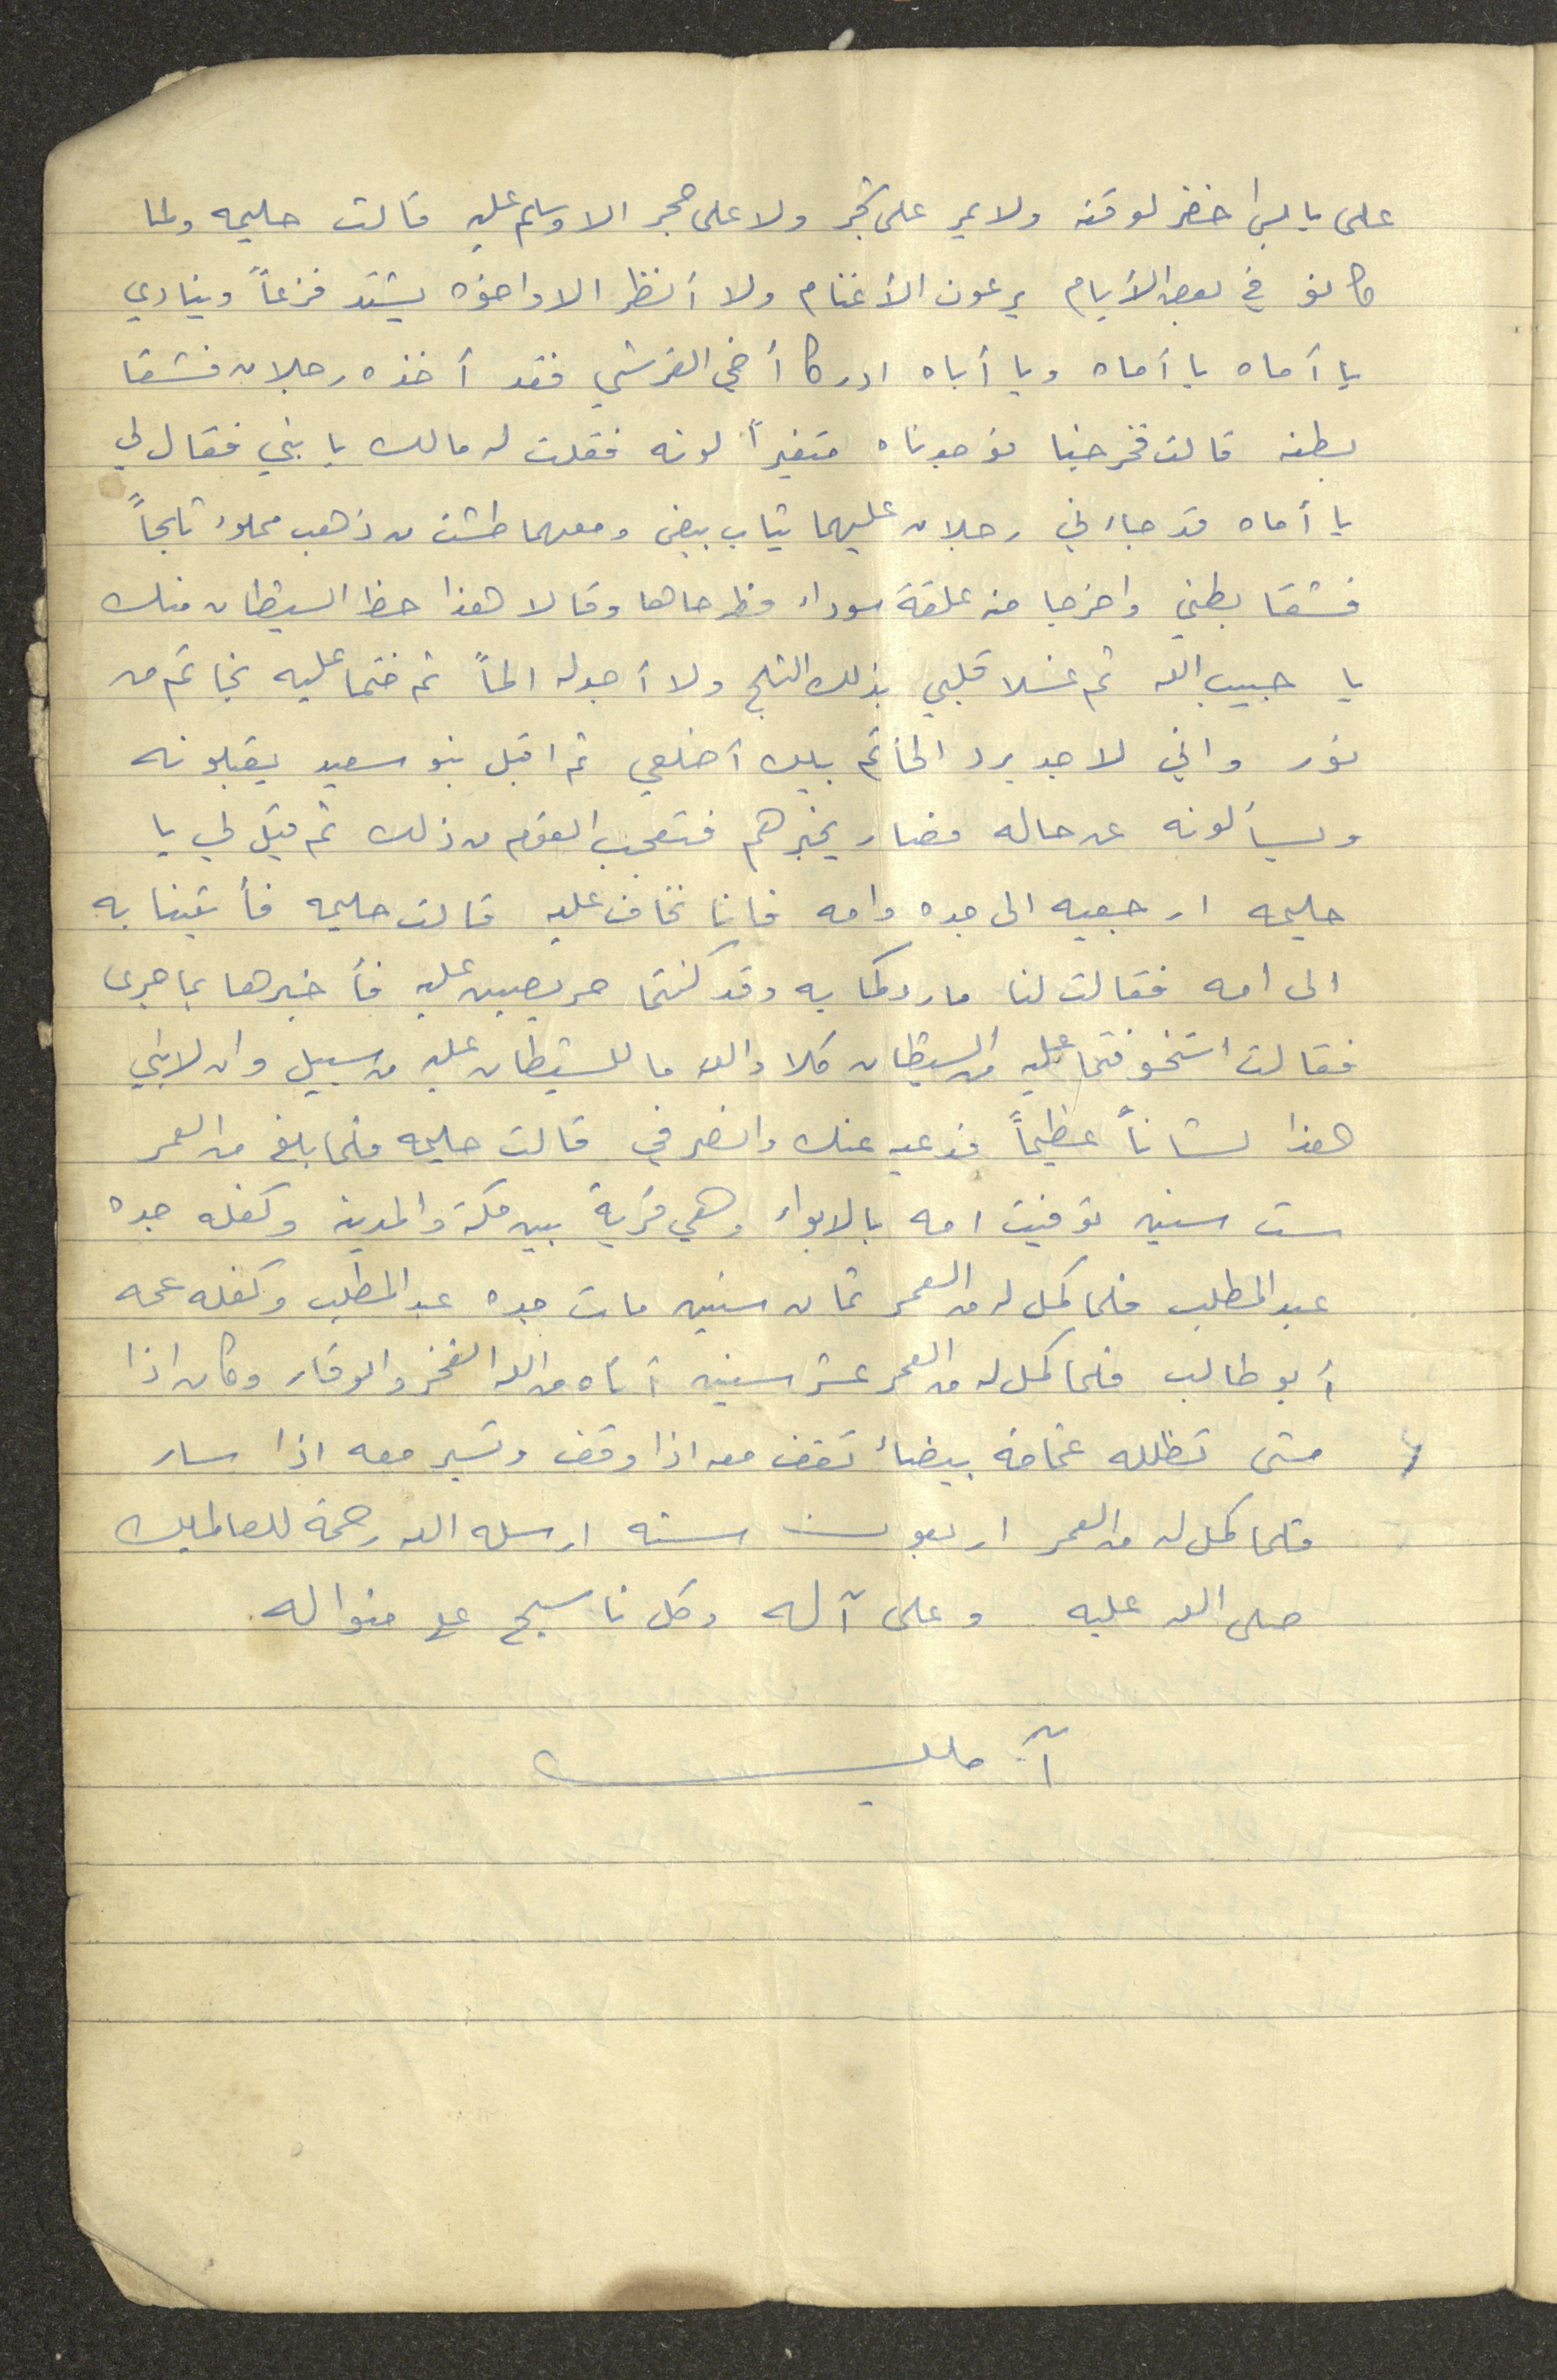 على يابس اخضر لوقته ولا يمر على شجر ولا على حجر الا وسلم عليه قالت حليمه ولما
كانو في بعض الأيام يرعون الأغنام ولا أنظر الا واخوه يشتد فزعاً وينادي
يا أماه يا أماه ويا أباه ادركا أخي القرشي فقد أخذه رجلان فشقا
بطنه قالت فخرجنا فوجدناه متغيراً لونه فقلت له مالك يا بني فقال لي
يا أماه قد جاءني رجلان عليهما ثياب بيض ومعهما طشت من ذهب مملوء ثلجاً
فشقا بطني واخرجا منه علقة سوداء فطرحاها وقالا هذا حظ الشيطان منك
يا حبيب الله ثم غسلا قلبي بذلك الثلج ولا أجد له الماً ثم ختما عليه بخاتم من
نور واني لاجد برد الخاتم بين أضلعي ثم اقبل بنو سعيد يقبلونه
ويسألونه عن حاله فصار يخبرهم فتعجب القوم من ذلك ثم قيل لي يا
حليمه ارجعيه الى جده وامه فانا نخاف عليه قالت حليمه فأتينا به
الى امه فقالت لنا ما ردكما به وقد كنتما حريصين عليه فأخبرها بما جرى
فقالت أتخوفتما عليه من الشيطان كلا والله ما للشيطان عليه من سبيل وان لابني
هذا لشاناً عظيماً فدعيه عنك وانصرفي قالت حليمه فلما بلغ من العمر
ست سنين توفيت امه بالابواء وهي قرية بين مكة والمدينه وكفله جده
عبد المطلب فلما كمل له من العمر ثمان سنين مات جده عبد المطلب وكفله عمه
أبو طالب فلما كمل له من العمر عشر سنين أتاه من الله الفخر والوقار وكان اذا
مشى تظلله غمامة بيضاء تقف معه اذا وقف وتسير معه اذا سار
فلما كمل له من العمر اربعون سنه ارسله الله رحمة للعالمين
صلى الله عليه وعلى آله وكل ناسج على منواله
آمين